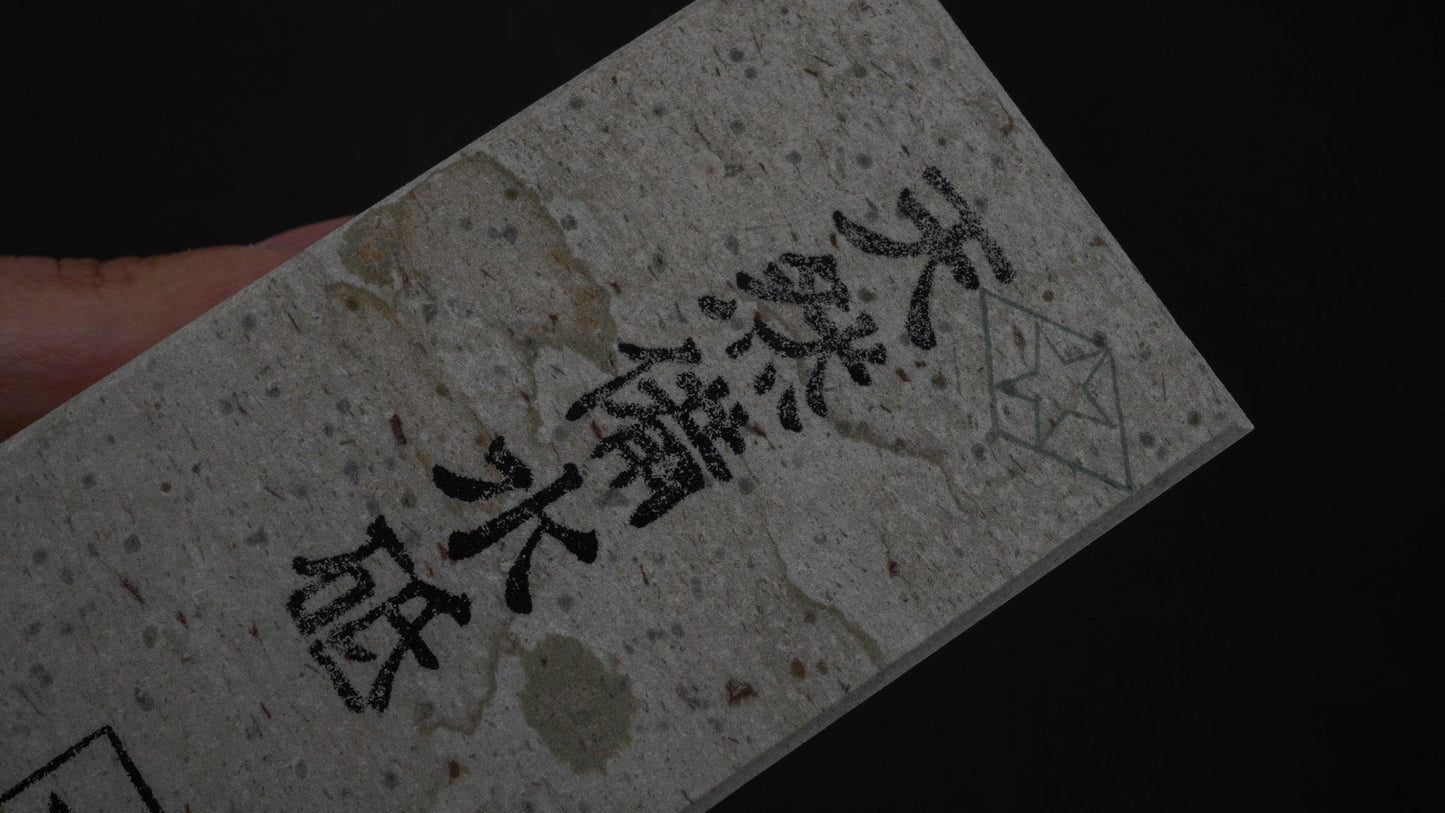 天然備水砥